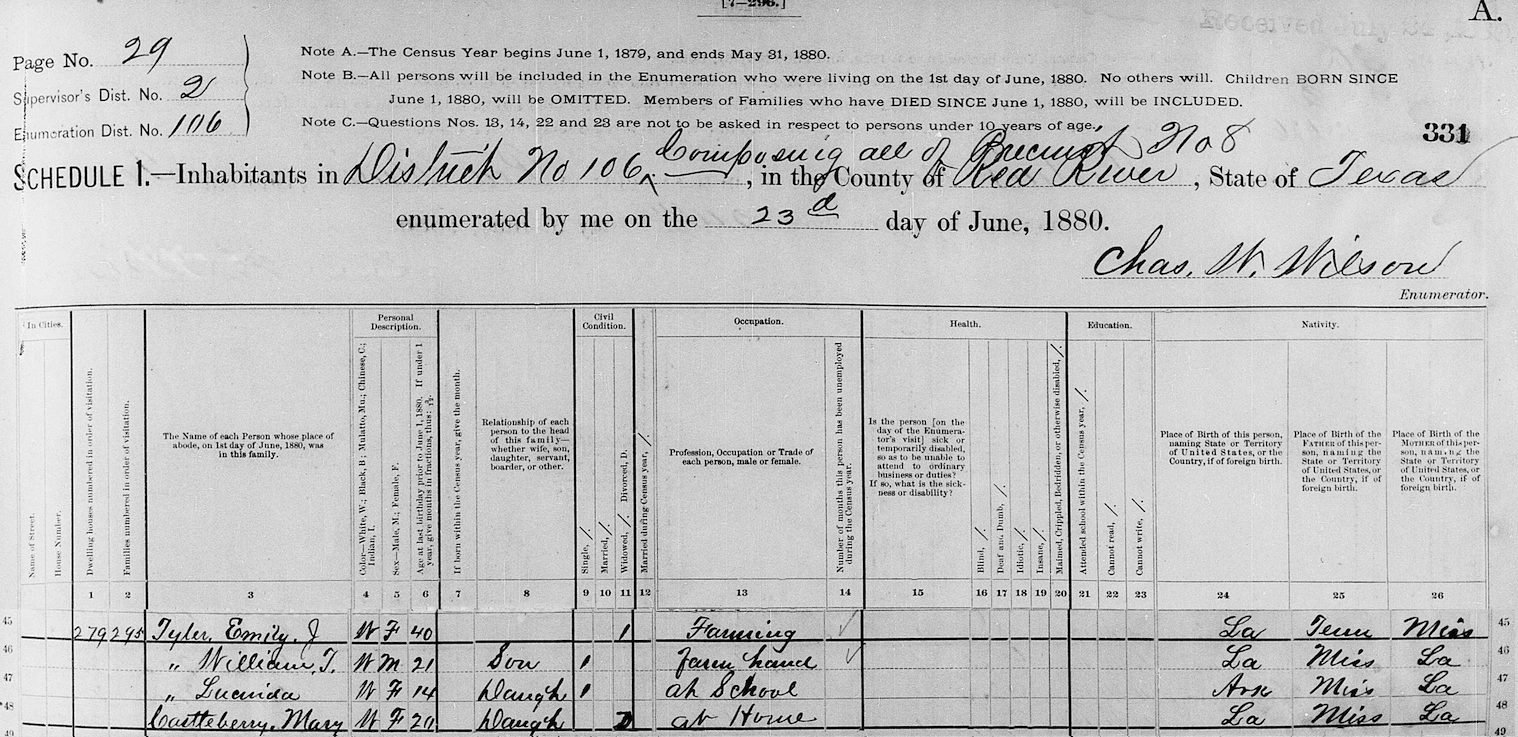 [7-296.]
A.
Page No. 29
Supervisor's Dist. No. 2
Enumeration Dist. No. 106
Note A.—The Census Year begins June 1, 1879, and ends May 31, 1880.
Note B.—All persons will be included in the Enumeration who were living on the 1st day of June, 1880. No others will. Children BORN SINCE
June 1, 1880, will be OMITTED. Members of Families who have DIED SINCE June 1, 1880, will be INCLUDED.
Note C.—Questions Nos. 13, 14, 22 and 23 are not to be asked in respect to persons under 10 years of age.
331
Composing all of Precinct No 8
SCHEDULE 1.—Inhabitants in District No 106, in the County of Red River, State of Texas
enumerated by me on the 23d day of June, 1880.
Chas. W. Wilson
Enumerator.
In Cities.
Personal Description.
Civil Condition.
Occupation.
Health.
Education.
Nativity.
Name of Street.
House Number.
Dwelling houses numbered in order of visitation.
Families numbered in order of visitation.
The Name of each Person whose place of
abode, on 1st day of June, 1880, was
in this family.
Color—White, W.; Black, B.; Mulatto, Mu.; Chinese, C.;
Indian, I.
Sex—Male, M.; Female, F.
Age at last birthday prior to June 1, 1880. If under 1
year, give months in fractions, thus: 3/12.
If born within the Census year, give the month.
Relationship of each
person to the head
of this family—
whether wife, son,
daughter, servant,
boarder, or other.
Single, /.
Married, /.
Widowed, /. Divorced, D.
Married during Census year, /.
Profession, Occupation or Trade of
each person, male or female.
Number of months this person has been unemployed
during the Census year.
Is the person [on the
day of the Enumera-
tor's visit] sick or
temporarily disabled,
so as to be unable to
attend to ordinary
business or duties?
If so, what is the sick-
ness or disability?
Blind, /.
Deaf and Dumb, /.
Idiotic, /.
Insane, /.
Maimed, Crippled, Bedridden, or otherwise disabled, /.
Attended school within the Census year, /.
Cannot read, /.
Cannot write, /.
Place of Birth of this person,
naming State or Territory
of United States, or the
Country, if of foreign birth.
Place of Birth of the
FATHER of this per-
son, naming the
State or Territory
of United States, or
the Country, if of
foreign birth.
Place of Birth of the
MOTHER of this per-
son, naming the
State or Territory
of United States, or
the Country, if of
foreign birth.
1 2 3 4 5 6 7 8 9 10 11 12 13 14 15 16 17 18 19 20 21 22 23 24 25 26
45 279 295 Tyler, Emily. J W F 40 1 Farming La Tenn Miss 45
46 " William, T. W M 21 Son 1 farm hand La Miss La 46
47 " Lucinda W F 14 Daugh 1 at School Ark Miss La 47
48 Castleberry, Mary W F 20 Daugh D at Home La Miss La 48
49 49